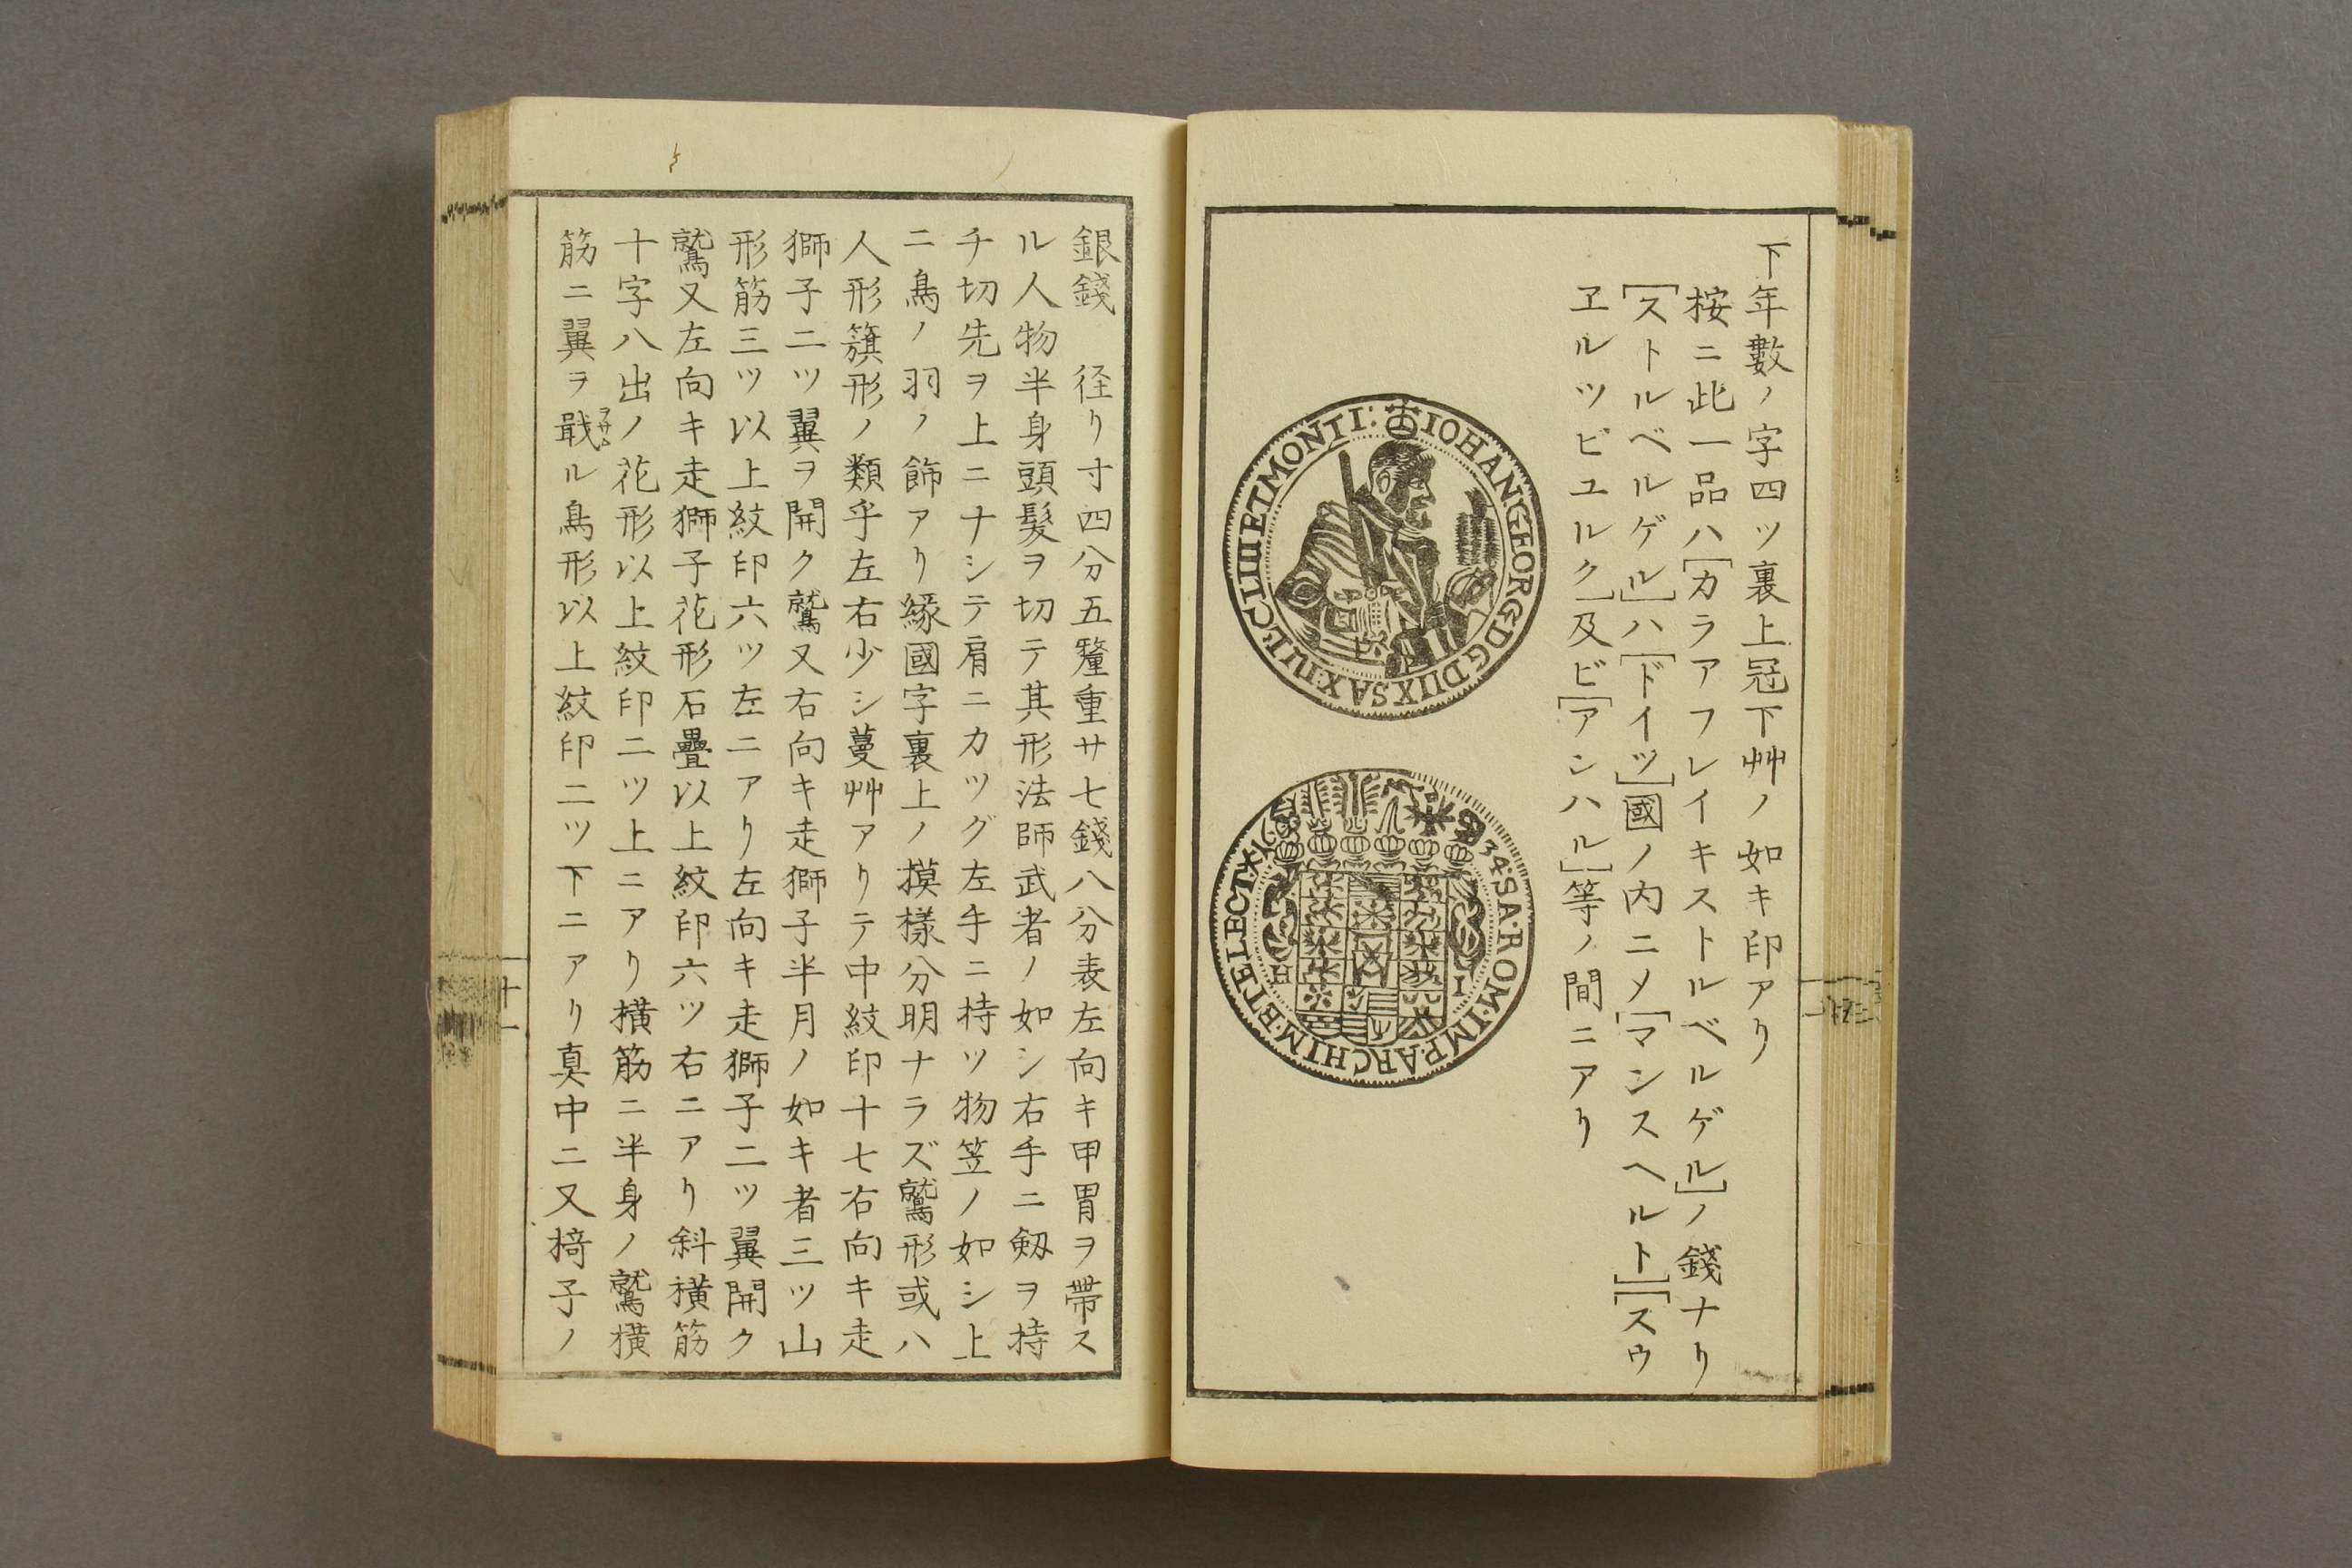 下年數ノ字四ツ裏上冠下艸ノ如キ印アリ
桉ニ此一品ハ[カラアフレイキストルベルゲル]ノ錢ナリ
[ストルベルゲル]ハ[ドイツ]國ノ内ニメ[マンスヘルト][スウ
ヱルツビユルク]及ビ[アンハル]等ノ間ニアリ
IOHAN GEORG:D G DUX SAX·IUL:CLIUI ET MONTI:
34·SA·ROM·IMP·ARCHIM·ET ELECT*16
H I
銀錢 径リ寸四分五釐重サ七錢八分表左向キ甲冑ヲ帶ス
ル人物半身頭髮ヲ切テ其形法師武者ノ如シ右手ニ劔ヲ持
チ切先ヲ上ニナシテ肩ニカツグ左手ニ持ツ物笠ノ如シ上
ニ鳥ノ羽ノ飾アリ緣國字裏上ノ摸樣分明ナラズ鷲形或ハ
人形籏形ノ類乎左右少シ蔓艸アリテ中紋印十七右向キ走
獅子二ツ翼ヲ開ク鷲又右向キ走獅子半月ノ如キ者三ツ山
形筋三ツ以上紋印六ツ左ニアリ左向キ走獅子二ツ翼開ク
鷲又左向キ走獅子花形石疊以上紋印六ツ右ニアリ斜橫筋
十字八出ノ花形以上紋印二ツ上ニアリ橫筋ニ半身ノ鷲橫
筋ニ翼ヲ戢ル鳥形以上紋印二ツ下ニアリ真中ニ又椅子ノ
十一